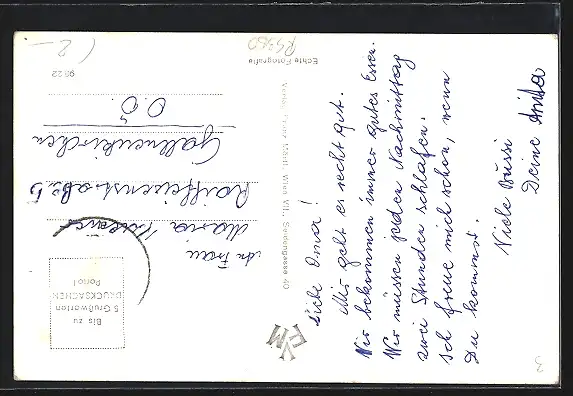 Liebe Oma!
Mir geht es recht gut.
Wir bekommen immer gutes Essen.
Wir müssen jeden Nachmittag
zwei Stunden schlafen.
Ich freue mich schon, wenn
Du kommst.
Viele Bussi
Deine Anita
Verlag Franz Mörtl, Wien VII., Seidengasse 40
Echte Fotografie
R5360
9822
Bis zu
5 Grußworten
DRUCKSACHEN-
Porto!
An Frau
Maria
Raiffeisenstraße 5
Gallneukirchen
O.Ö.